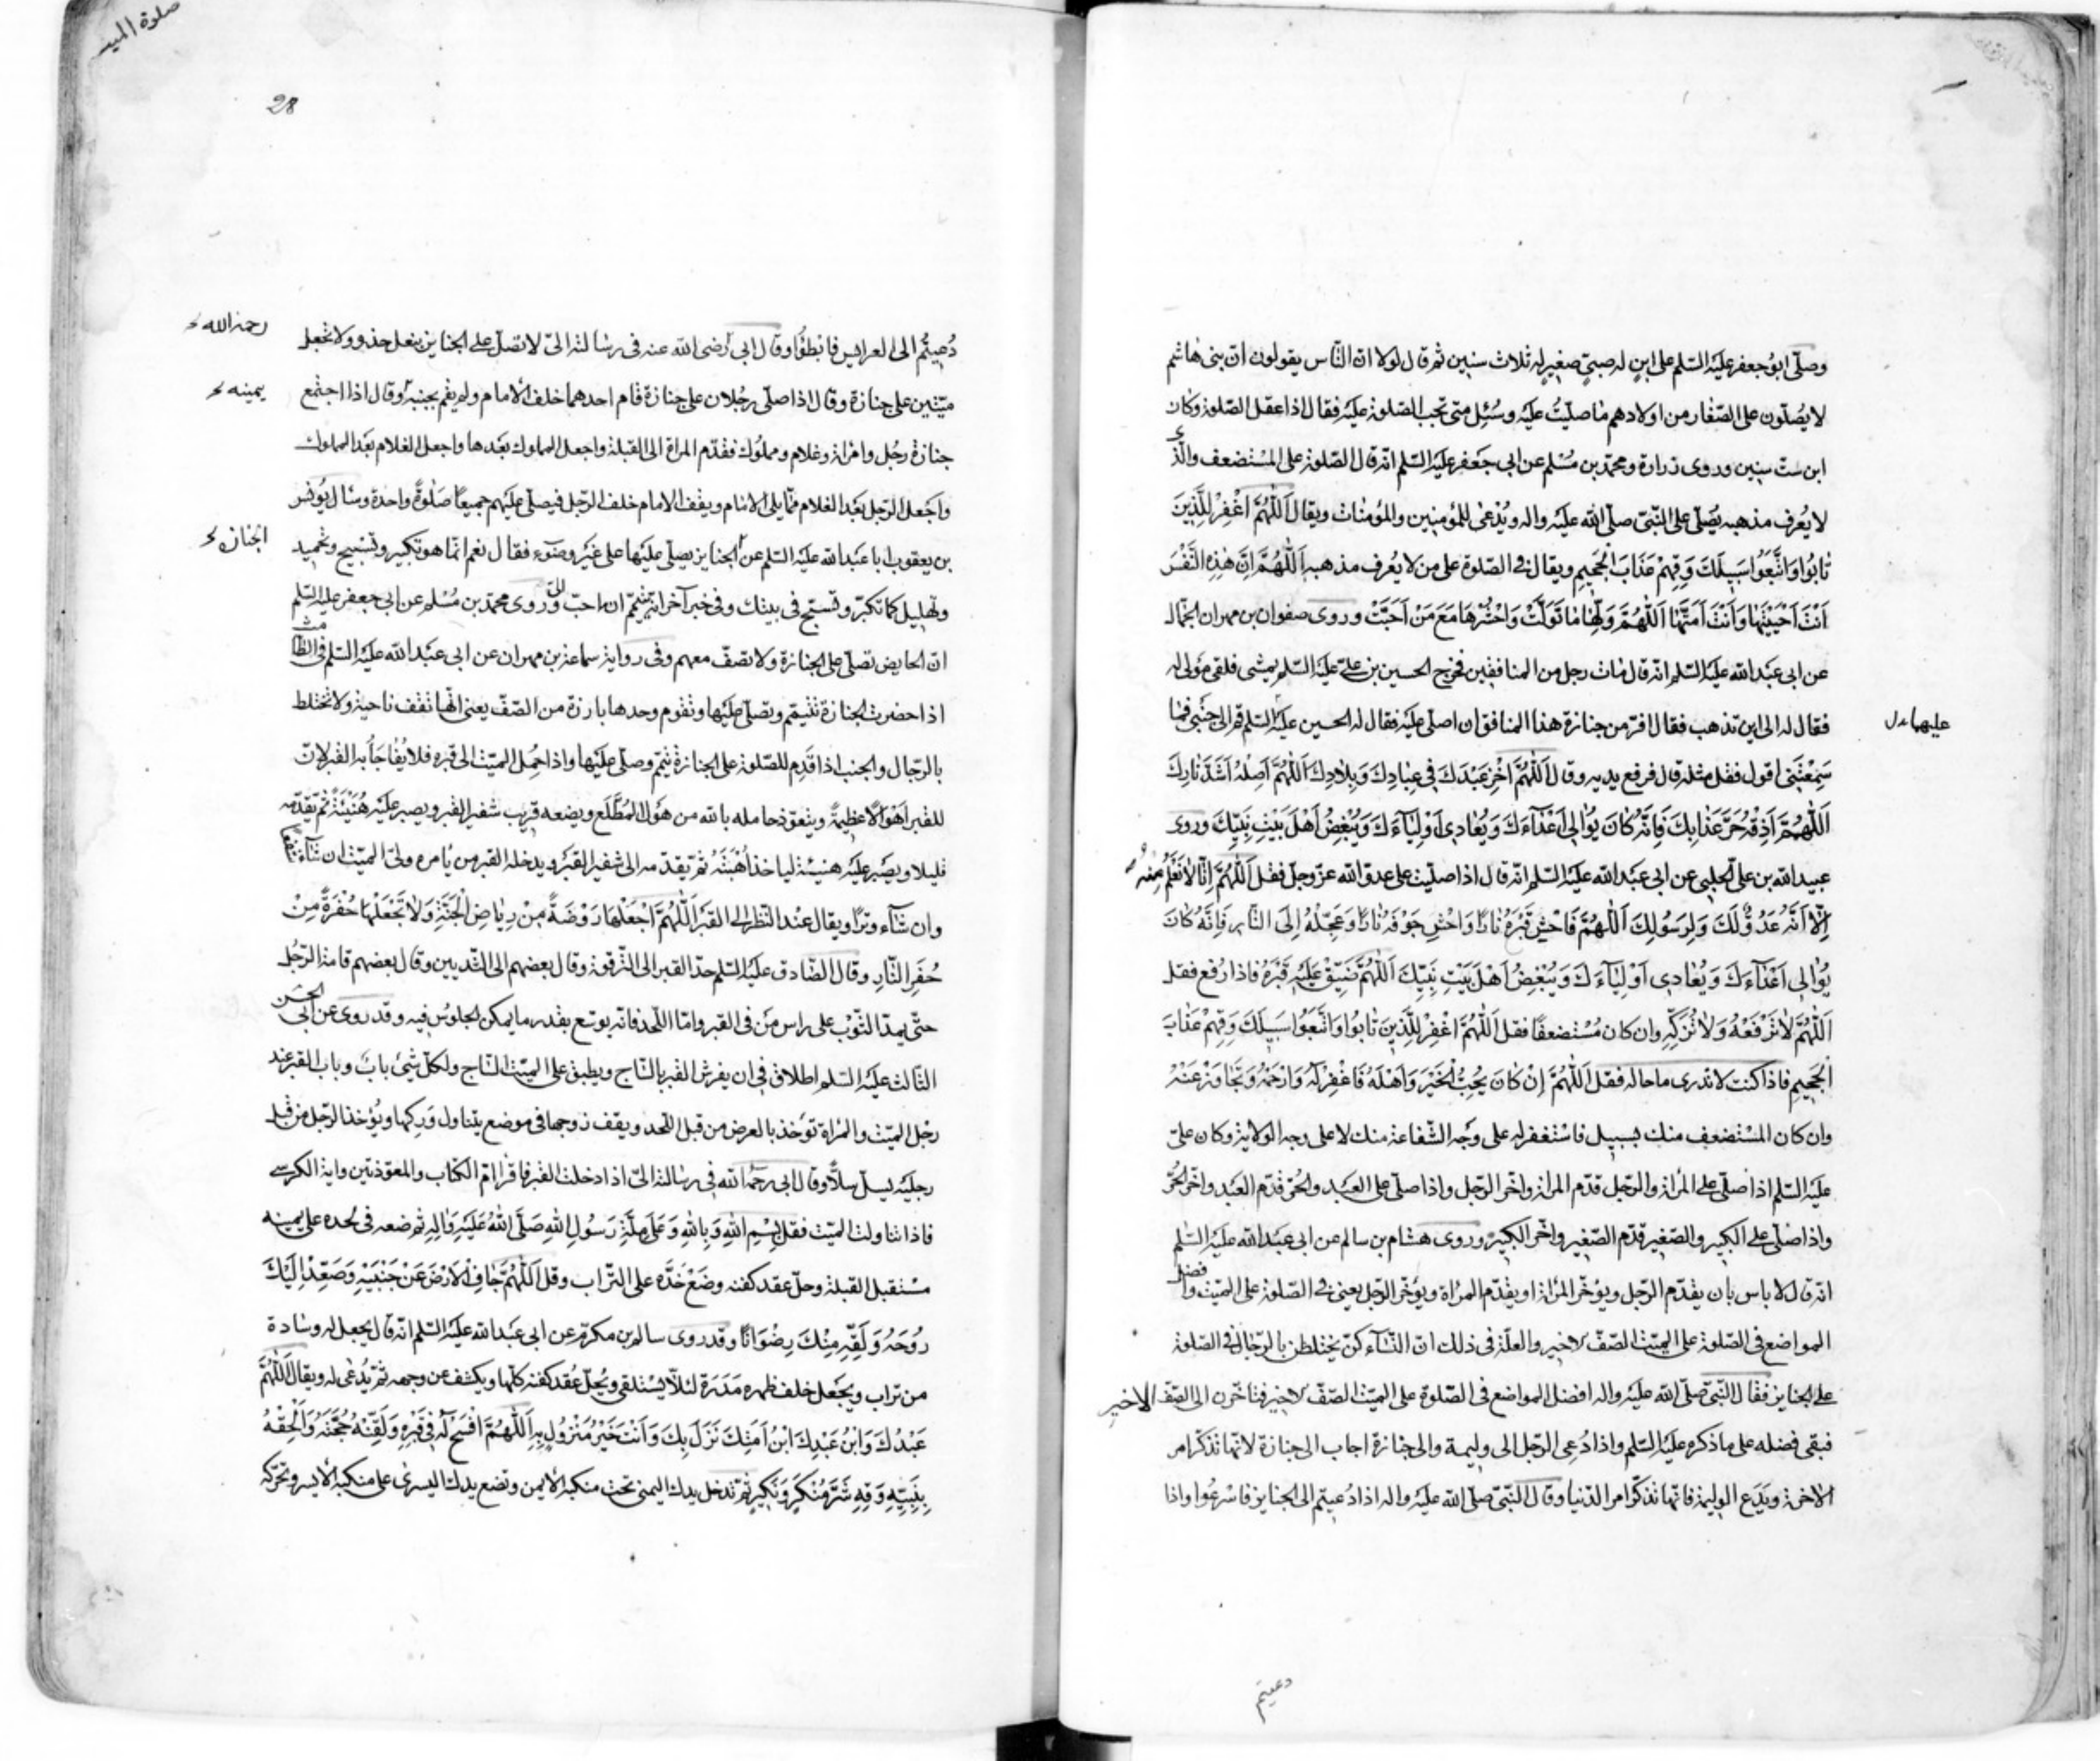 وصلّى ابو جعفر عليه السّلم على ابن له صبيّ صغير له ثلاث سنين ثم قال لولا انّ النّاس يقولون انّ بنى هاشم
لا يصلّون على الصّغار من اولادهم ما صلّيت عليه وسُئل متى تجب الصّلوة عليه فقال اذا عقل الصّلوة وكان
ابن ستّ سنين وروى زرارة ومحمّد بن مسلم عن ابى جعفر عليه السّلم انّه قال الصّلوة على المستضعف والّذي
لا يعرف مذهبه يصلّى على النّبىّ صلّى الله عليه واله ويُدعى للمؤمنين والمؤمنات ويقال اَللّهُمَّ اغْفِرْ لِلَّذِينَ
تابُوا وَاتَّبَعُوا سَبِيلَكَ وَقِهِمْ عَذَابَ الْجَحِيمِ ويقال في الصّلوة على من لا يعرف مذهبه اَللّهُمَّ اِنَّ هٰذِهِ النَّفْسَ
اَنْتَ اَحْيَيْتَهَا وَاَنْتَ اَمَتَّهَا اَللّهُمَّ وَلِّهَا مَا تَوَلَّتْ وَاحْشُرْهَا مَعَ مَنْ اَحَبَّتْ وروى صفوان بن مهران الجمّال
عن ابى عبد الله عليه السّلم انّه قال مات رجل من المنافقين فخرج الحسين بن على عليه السّلم يمشى فلقى مولى له
فقال له الى اين تذهب فقال افرّ من جنازة هذا المنافق ان اصلّى عليه فقال له الحسين عليه السّلم قم الى جنبى فما
عليهما
سَمِعْتَنِى اقول فقل مثله قال فرفع يديه وقال اَللّهُمَّ اَخْزِ عَبْدَكَ فِى عِبَادِكَ وَبِلَادِكَ اَللّهُمَّ اَصْلِهِ اَشَدَّ نَارِكَ
اَللّهُمَّ اَذِقْهُ حَرَّ عَذَابِكَ فَاِنَّهُ كَانَ يُوَالِى اَعْدَآءَكَ وَيُعَادِى اَوْلِيَآءَكَ وَيُبْغِضُ اَهْلَ بَيْتِ نَبِيِّكَ وروى
عبيد الله بن على الحلبى عن ابى عبد الله عليه السّلم انّه قال اذا صلّيت على عدوّ الله عزّ وجل فقل اَللّهُمَّ اِنّا لا نَعْلَمُ مِنْهُ
اِلّا اَنَّهُ عَدُوٌّ لَكَ وَلِرَسُولِكَ اَللّهُمَّ فَاحْشِ قَبْرَهُ نَارًا وَاحْشِ جَوْفَهُ نَارًا وَعَجِّلْهُ اِلَى النَّارِ فَاِنَّهُ كَانَ
يُوَالِى اَعْدَآءَكَ وَيُعَادِى اَوْلِيَآءَكَ وَيُبْغِضُ اَهْلَ بَيْتِ نَبِيِّكَ اَللّهُمَّ ضَيِّقْ عَلَيْهِ قَبْرَهُ فاذا رفع فقل
اَللّهُمَّ لا تَرْفَعْهُ وَلا تُزَكِّهِ وان كان مستضعفًا فقل اَللّهُمَّ اغْفِرْ لِلَّذِينَ تَابُوا وَاتَّبَعُوا سَبِيلَكَ وَقِهِمْ عَذَابَ
الْجَحِيمِ فاذا كنت لا تدرى ما حاله فقل اَللّهُمَّ اِنْ كَانَ يُحِبُّ الْخَيْرَ وَاَهْلَهُ فَاغْفِرْ لَهُ وَارْحَمْهُ وَتَجَاوَزْ عَنْهُ
وان كان المستضعف منك بسبيل فاستغفر له على وجه الشّفاعة منك لا على وجه الولاية وكان علىّ
عليه السّلم اذا صلّى على المرأة والرّجل قدّم المرأة واخّر الرّجل واذا صلّى على العبد والحرّ قدّم العبد واخّر الحرّ
واذا صلّى على الكبير والصّغير قدّم الصّغير واخّر الكبير وروى هشام بن سالم عن ابى عبد الله عليه السّلم
انّه قال لا باس بان يقدّم الرّجل ويؤخّر المرأة او يقدّم المرأة ويؤخّر الرّجل يعنى في الصّلوة على الميّت وافضل
المواضع فى الصّلوة على الميّت الصّفّ الاخير والعلّة فى ذلك انّ النّسآء كنّ يختلطن بالرّجال في الصّلوة
على الجنايز فقال النّبىّ صلّى الله عليه واله افضل المواضع فى الصّلوة على الميّت الصّفّ الاخير فتاخّرن الى الصّفّ الاخير
فبقى فضله على ما ذكره عليه السّلم واذا دُعى الرّجل الى وليمة والى جنازة اجاب الى جنازة لانّها تذكّر امر
الاخرة ويدع الوليمة فانّها تذكّر امر الدّنيا وقال النّبىّ صلّى الله عليه واله اذا دُعيتم الى الجنايز فاسرعوا واذا
دعيتم
صلوة الميت
28
دُعيتُم الى العرايس فابطؤا وقال ابى رضى الله عنه فى رسالته الىّ لا تصلّ على الجنايز بنعل حذو ولا تجعل
رحمه الله
ميّتين على جنازة وقال اذا صلّى رجلان على جنازة قام احدهما خلف الامام ولم يقم بجنبه وقال اذا اجتمع
يمينه
جنازة رجل وامرأة وغلام ومملوك فقدّم المرأة الى القبلة واجعل المملوك بعدها واجعل الغلام بعد المملوك
واجعل الرّجل بعد الغلام ممّا يلى الامام ويقف الامام خلف الرّجل فيصلّى عليهم جميعًا صلوةً واحدة وسأل يونس
بن يعقوب ابا عبد الله عليه السّلم عن الجنايز يصلّى عليها على غير وضوء فقال نعم انّما هو تكبير وتسبيح وتحميد
الجنازة
وتهليل كما تكبّر وتسبّح فى بيتك وفى خبر آخر انّه يتيمّم ان احبّ وروى محمّد بن مسلم عن ابى جعفر عليه السّلم
انّ الحايض تصلّى على الجنازة ولا تصفّ معهم وفى رواية سماعة بن مهران عن ابى عبد الله عليه السّلم فى الطّامث
اذا حضرت الجنازة تتيمّم وتصلّى عليها وتقوم وحدها بارزة من الصّفّ يعنى انّها تقف ناحية ولا تختلط
بالرّجال والجنب اذا قدم للصّلوة على الجنازة تيمّم وصلّى عليها واذا حُمل الميّت الى قبره فلا يفاجأ به القبر لانّ
للقبر اهوالًا عظيمةً ويتعوّذ حامله بالله من هول المطّلع ويضعه قريب شفير القبر ويصبر عليه هنيئة ثم يقدّمه
قليلا ويصبر عليه هنيئة لياخذ اُهبته ثم يقدّمه الى شفير القبر ويدخله القبر من يامره ولىّ الميّت ان شآء شفعًا
وان شآء وترًا ويقال عند النّظر الى القبر اَللّهُمَّ اجْعَلْهَا رَوْضَةً مِنْ رِيَاضِ الْجَنَّةِ وَلا تَجْعَلْهَا حُفْرَةً مِنْ
حُفَرِ النَّارِ وقال الصّادق عليه السّلم حدّ القبر الى التّرقوة وقال بعضهم الى الثّديين وقال بعضهم قامة الرّجل
حتّى يمدّ الثّوب على راس من فى القبر وامّا اللّحد فانّه يوسّع بقدر ما يمكن الجلوس فيه وقد روى عن ابى الحسن
الثّالث عليه السّلم اطلاق فى ان يفرش القبر بالسّاج ويطبق على الميّت السّاج ولكلّ شىء باب وباب القبر عند
رجل الميّت والمرأة تؤخذ بالعرض من قبل اللّحد ويقف زوجها فى موضع يتناول وركها ويؤخذ الرّجل من قبل
رجليه يسلّ سلًّا وقال ابى رحمه الله فى رسالته الىّ اذا دخلت القبر فاقرا امّ الكتاب والمعوّذتين واية الكرسى
فاذا تناولت الميّت فقل بِسْمِ اللهِ وَبِاللهِ وَعَلَى مِلَّةِ رَسُولِ اللهِ صَلَّى اللهُ عَلَيْهِ وَاٰلِهِ ثم ضعه فى لحده على يمينه
مستقبل القبلة وحلّ عقد كفنه وضع خدّه على التّراب وقل اَللّهُمَّ جَافِ الْاَرْضَ عَنْ جَنْبَيْهِ وَصَعِّدْ اِلَيْكَ
رُوحَهُ وَلَقِّهِ مِنْكَ رِضْوَانًا وقد روى سالم بن مكرم عن ابى عبد الله عليه السّلم انّه قال يجعل له وسادة
من تراب ويجعل خلف ظهره مدرة لئلّا يستلقى ويحلّ عقد كفنه كلّها ويكشف عن وجهه ثم يُدعى له ويقال اَللّهُمَّ
عَبْدُكَ وَابْنُ عَبْدِكَ ابْنُ اَمَتِكَ نَزَلَ بِكَ وَاَنْتَ خَيْرُ مَنْزُولٍ بِهِ اَللّهُمَّ افْسَحْ لَهُ فِى قَبْرِهِ وَلَقِّنْهُ حُجَّتَهُ وَاَلْحِقْهُ
بِنَبِيِّهِ وَقِهِ شَرَّ مُنْكَرٍ وَنَكِيرٍ ثم تدخل يدك اليمنى تحت منكبه الايمن وتضع يدك اليسرى على منكبه الايسر وتحرّكه